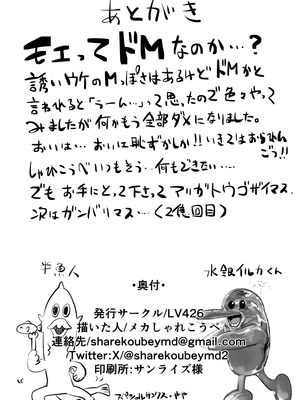 あとがき
モエってドMなのか…？
誘いウケのMっぽさはあるけどドMかと
言われると「うーん…」って思ったので色々やって
みましたが何かもう全部ダメになりました。
おいは… おいは恥ずかしか!! いきてはおられん
ごっ!!
しゃれこうべいつもそう…何もできない…
でもお手にとって下さってアリガトウゴザイマス
次はガンバリマス…(2億回目)
半魚人
水銀イルカくん
・奥付・
発行サークル/LV426
描いた人/メカしゃれこうべ
連絡先/sharekoubeymd@gmail.com
Twitter:X/@sharekoubeymd2
印刷所:サンライズ様
スペシャルサンクス・やや